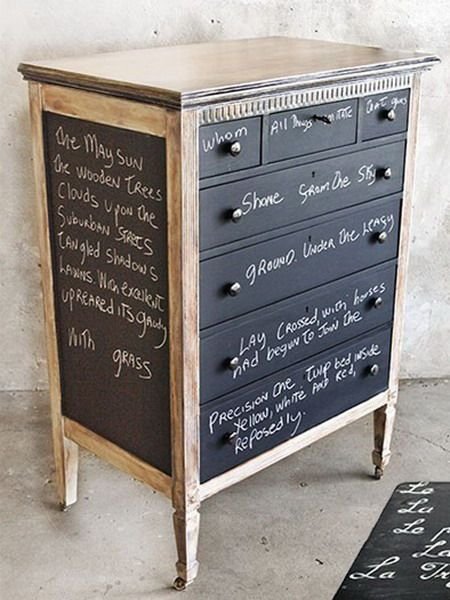 The MAY SUN
the wooden Trees
Clouds upon the
Suburban STREETS
tangled shadows
Lawns. With excellent
upreared its gaudy
With
grass
Whom
All Things imitate
that guys
Shone from the Sky
GROUND. Under the Leafy
LAY Crossed, with horses
had begun to Join the
PRECISION the Tulip bed inside
Yellow, white AND Red,
Reposedly.
Le
La
Le
La
La